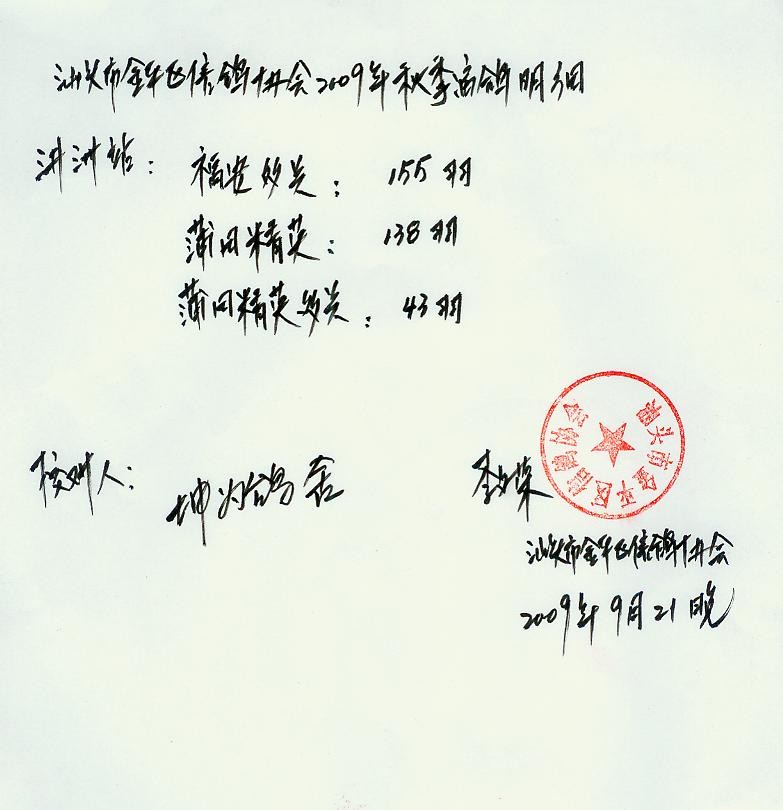 汕头市金平区信鸽协会2009年秋季鸽明细
汫洲站: 福安关: 155羽
蒲田精英: 138羽
蒲田精英关: 43羽
核对人: 坤鸽舍 李荣
汕头市金平区信鸽协会
汕头市金平区信鸽协会
2009年9月21晚